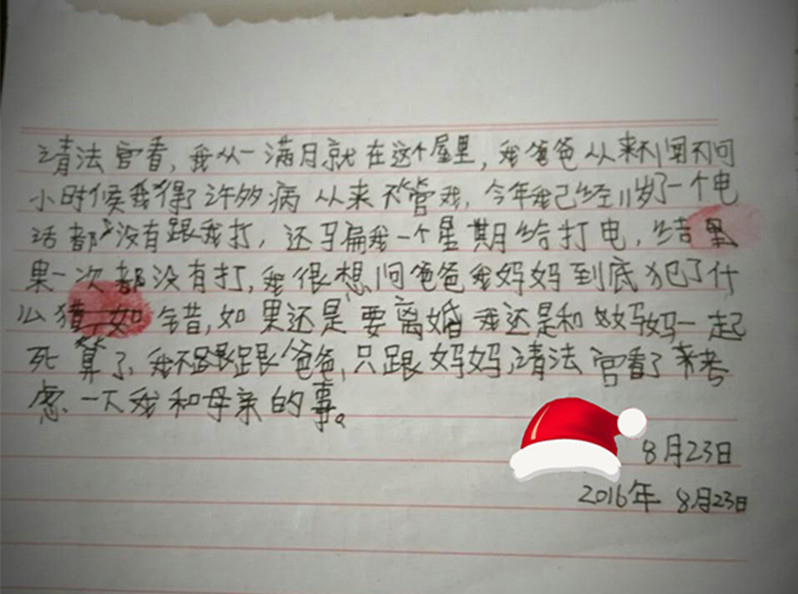 请法官看,我从一满月就在这个屋里,我爸爸从来不闻不问
小时候我得了许多病从来不管我,今年我已经11岁了一个电
话都没有跟我打,还骗我一个星期给打电,结
果一次都没有打,我很想问爸爸我妈妈到底犯了什
么错,如果还是要离婚我还是和妈妈一起
死算了,我不跟爸爸,只跟妈妈,请法官看了来考
虑一下我和母亲的事。
8月23日
2016年 8月23日